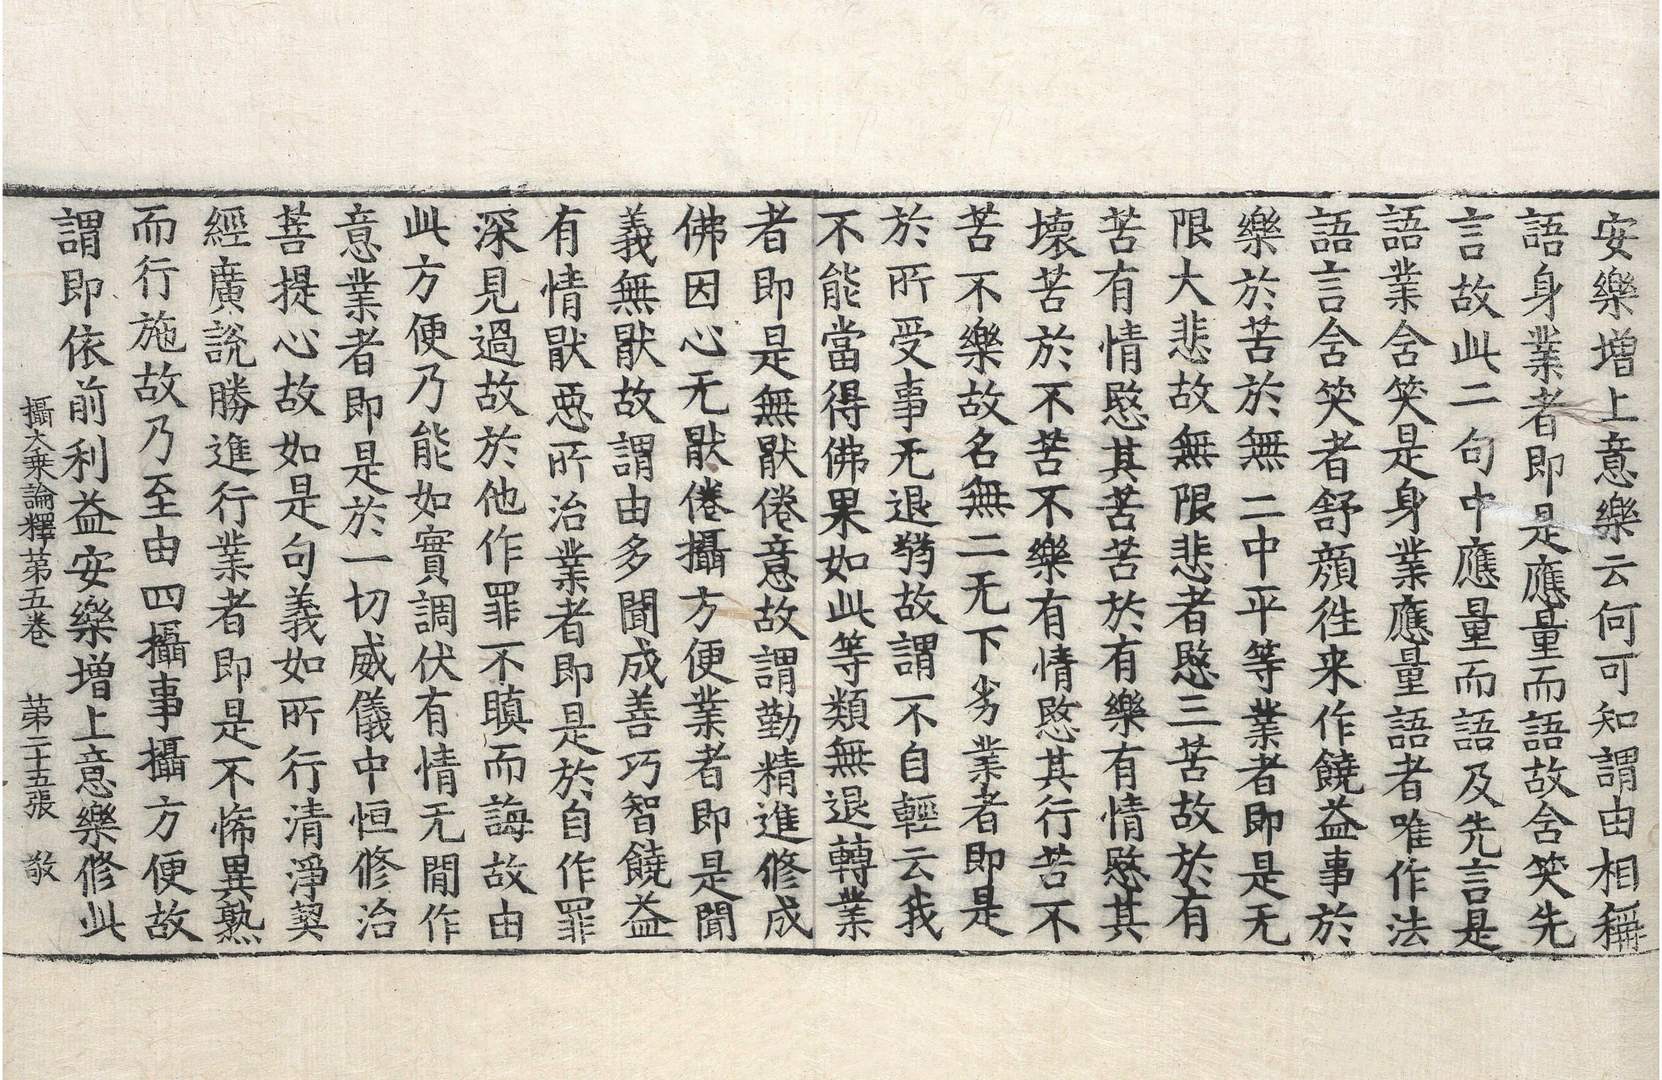 安樂增上意樂云何可知謂由相稱
語身業者即是應量而語故含笑先
言故此二句中應量而語及先言是
語業含笑是身業應量語者唯作法
語言含笑者舒顔徃来作饒益事於
樂於苦於無二中平等業者即是无
限大悲故無限悲者愍三苦故於有
苦有情愍其苦苦於有樂有情愍其
壞苦於不苦不樂有情愍其行苦不
苦不樂故名無二无下劣業者即是
於所受事无退㢡故謂不自輕云我
不能當得佛果如此等類無退轉業
者即是無猒倦意故謂勤精進修成
佛因心无猒倦攝方便業者即是聞
義無猒故謂由多聞成善巧智饒益
有情猒惡所治業者即是於自作罪
深見過故於他作罪不瞋而誨故由
此方便乃能如實調伏有情无閒作
意業者即是於一切威儀中恒修治
菩提心故如是句義如所行清淨契
經廣說勝進行業者即是不悕異熟
而行施故乃至由四攝事攝方便故
謂即依前利益安樂增上意樂修此
攝大乗論釋苐五卷　苐二十五張　敬